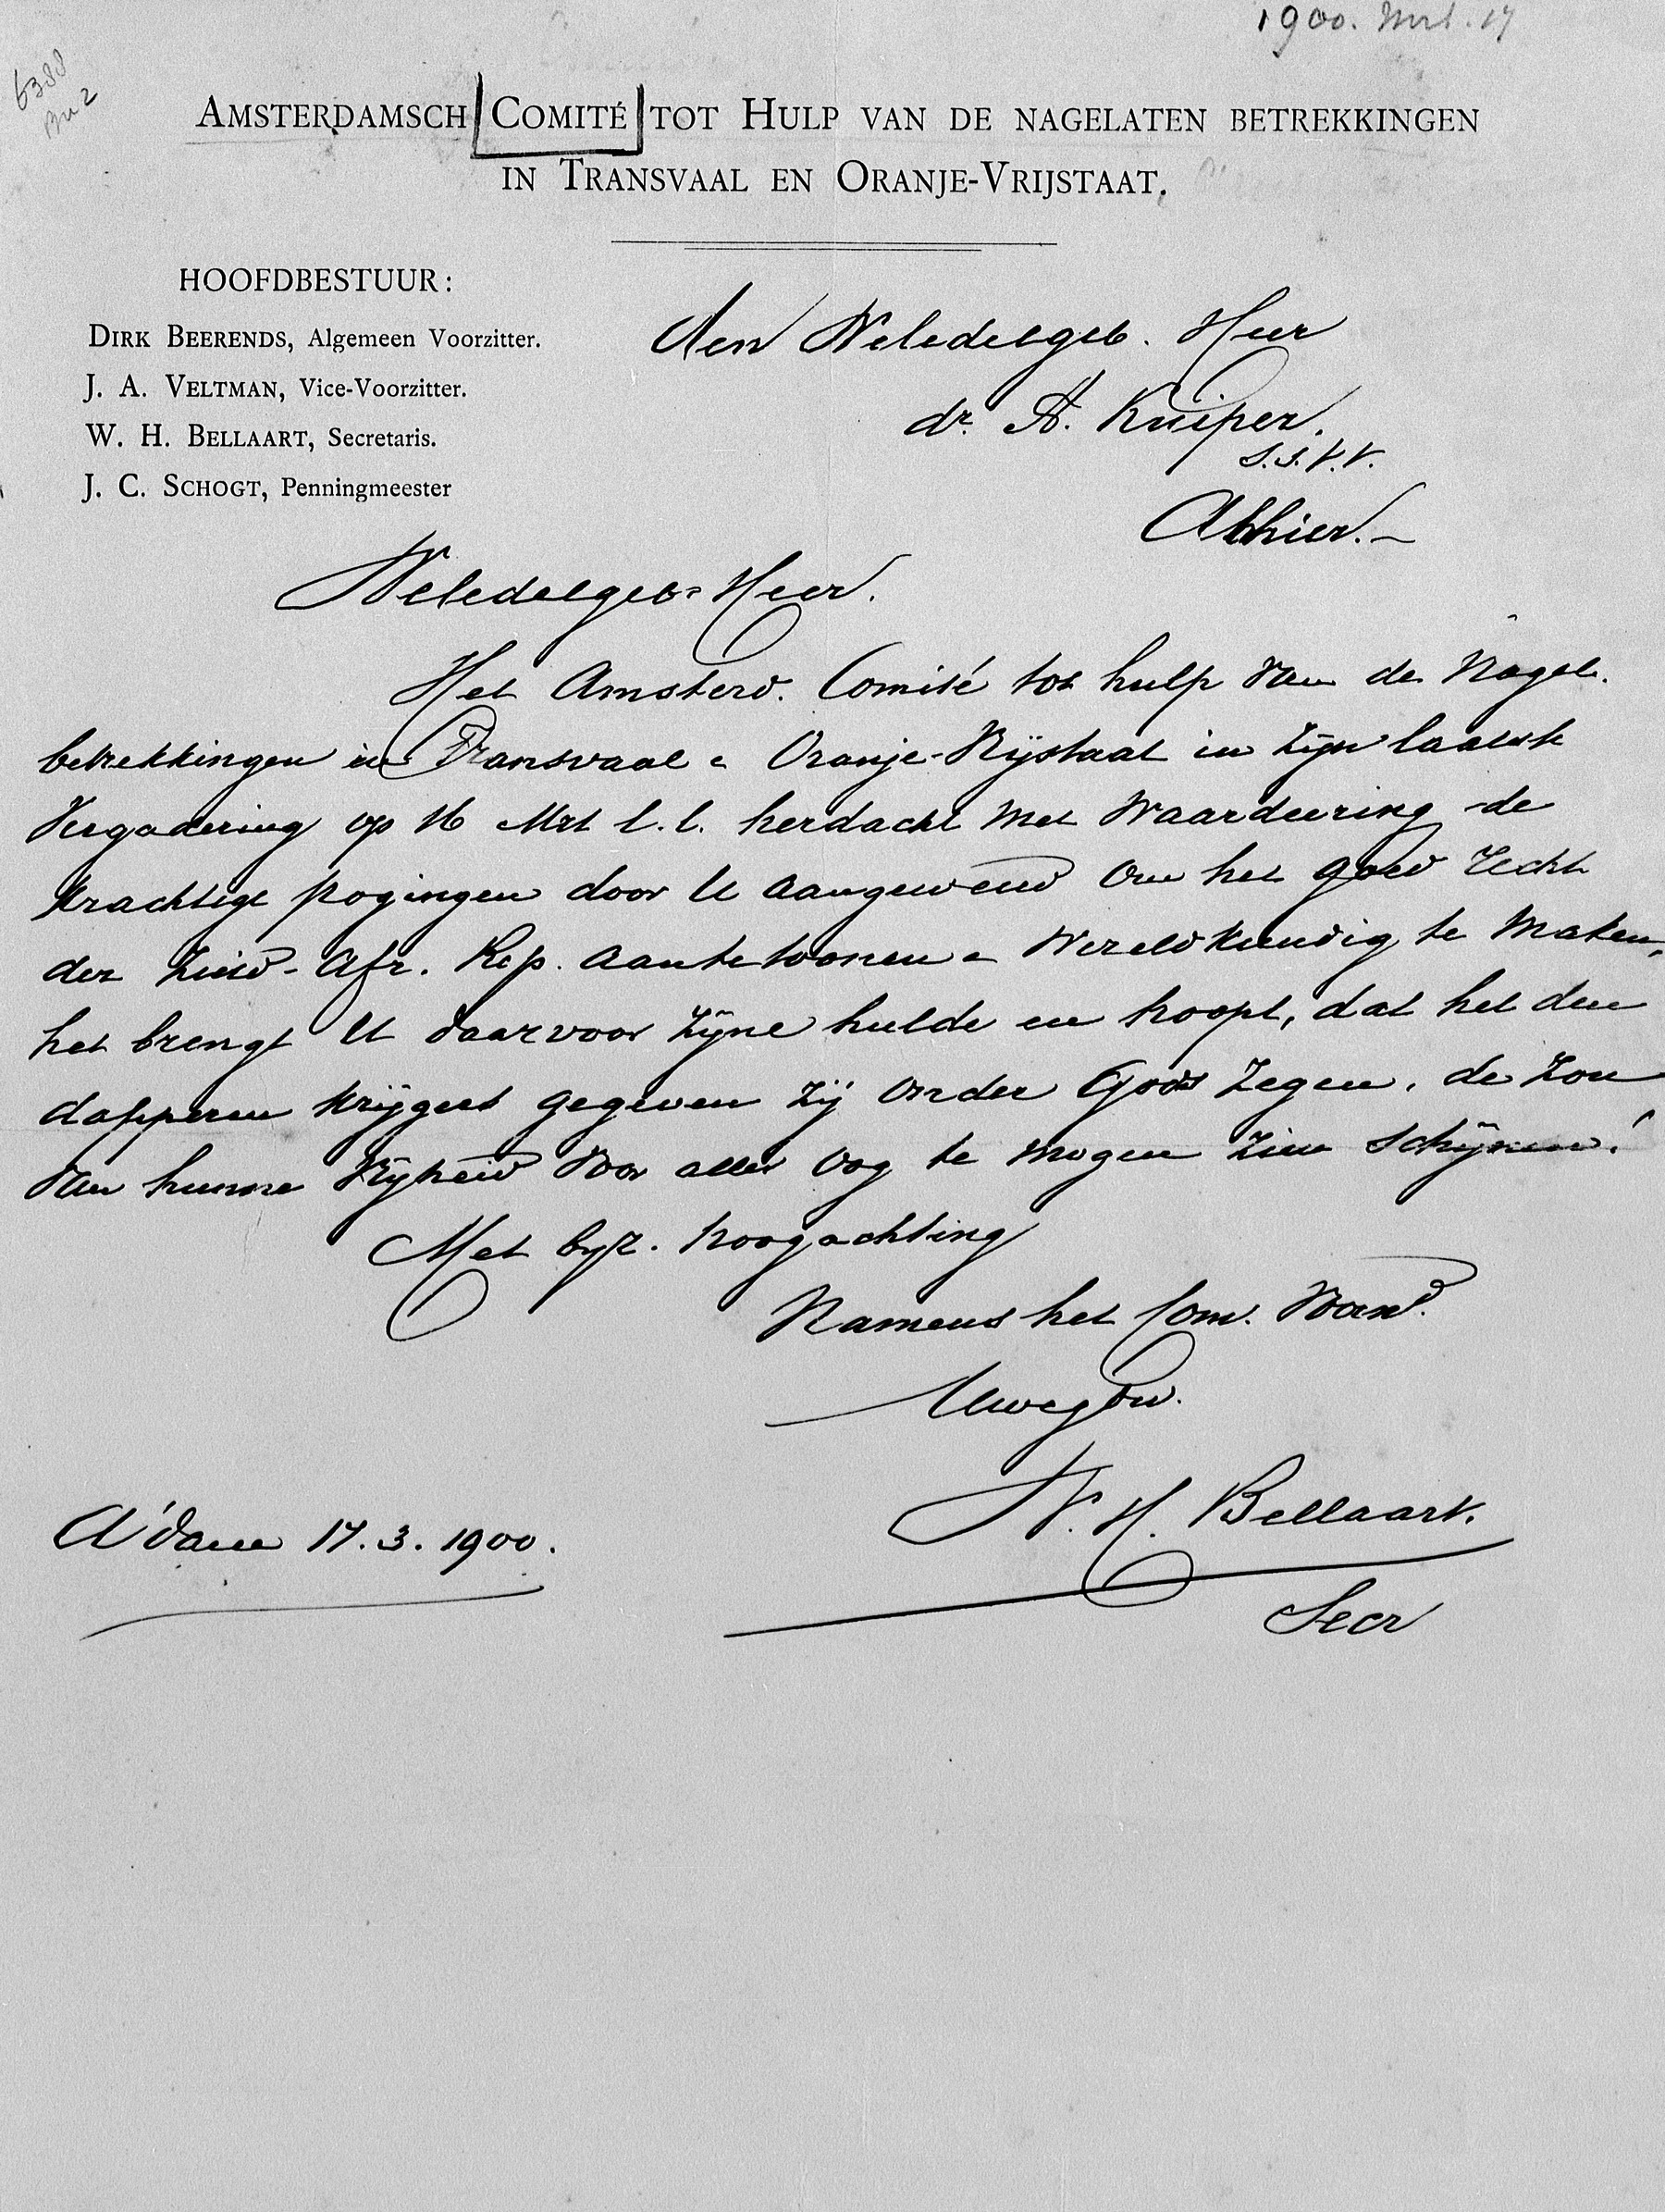 1900. Mrt. 17
6388
AMSTERDAMSCH COMITÉ TOT HULP VAN DE NAGELATEN BETREKKINGEN
IN TRANSVAAL EN ORANJE-VRIJSTAAT.
HOOFDBESTUUR:
DIRK BEERENDS, Algemeen Voorzitter.
J. A. VELTMAN, Vice-Voorzitter.
W. H. BELLAART, Secretaris.
J. C. SCHOGT, Penningmeester
Den Weledelgeb. Heer
dr. A. Kuiper.
S.S.V.V.
Alhier.-
Weledelgeb. Heer.
Het Amsterd. Comité tot hulp van de Nagel.
betrekkingen in Transvaal & Oranje-Vrijstaat in zijn laatste
Vergadering op 16 Mrt l.l. herdacht met waardeering de
krachtige pogingen door U aangewend om het goed recht
der Zuid-Afr. Rep. aantetoonen & wereldkundig te maken,
het brengt U daarvoor zijne hulde en hoopt, dat het den
dapperen krijgers gegeven zij onder Gods zegen, de zon
van hunne Vrijheid voor aller oog te mogen zien schijnen!
Met byz. hoogachting
Namens het Com. Voorn.
Uwegdw.
W. H. Bellaart.
Secr
A'dam 17.3.1900.